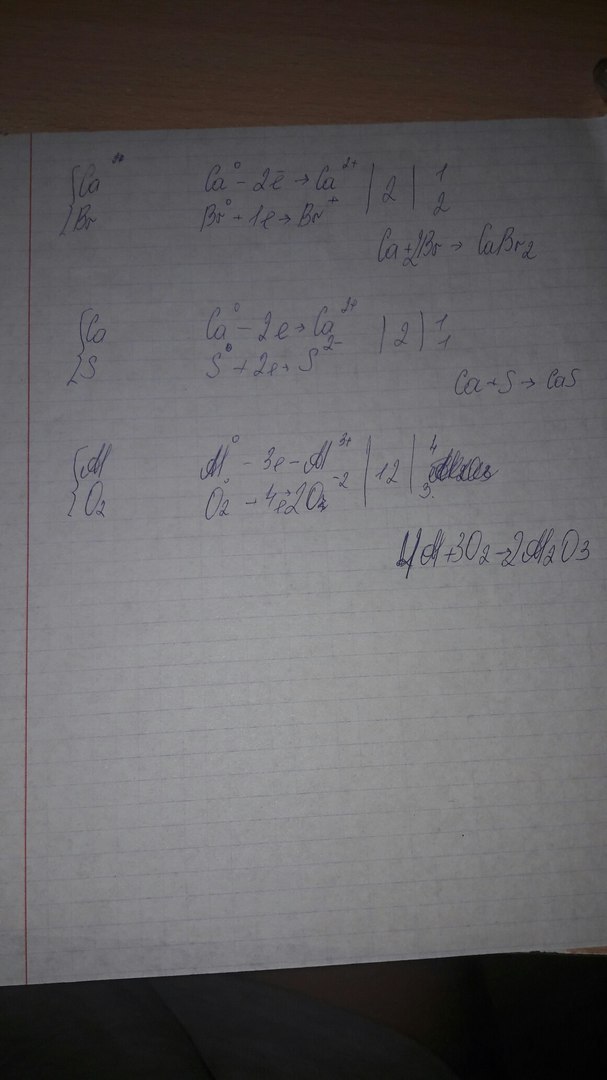 Ca²⁺ Ca⁰ - 2ē → Ca²⁺ | 2 | 1
Br Br⁰ + 1e → Br⁺ 2
Ca+2Br → CaBr₂
Ca Ca⁰ - 2e → Ca²⁺ | 2 | 1
S S⁰ + 2e → S²⁻ 1
Ca+S → CaS
Al Al⁰ - 3e - Al³⁺ | 12 | 4
O₂ O₂⁰ + 4e → 2O⁻² 3
4Al+3O₂→2Al₂O₃